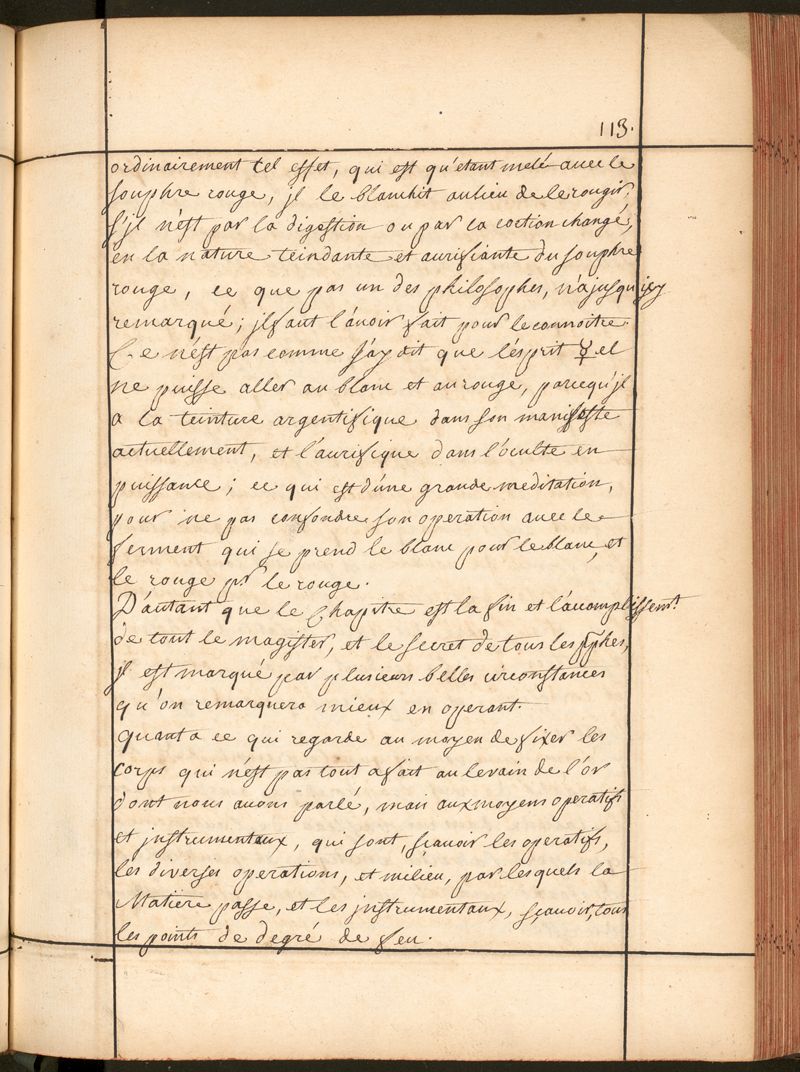 113.
ordinairement tel effet, qui est qu'étant melé avec le
souphre rouge, jl le blanchit aulieu de le rougir.
s'jl n'est par la digestion ou par la coction changé,
en la nature teindante et aurifiante du souphre
rouge, ce que pas un des philosophes, n'a jusqu'icy
remarqué; jl faut l'avoir fait pour le connoitre.
Ce n'est pas comme j'ay dit que l'esprit ☿el
ne puisse aller au blanc et au rouge, parcequ'jl
a la teinture argentifique dans son manifeste
actuellement, et l'aurifique dans l'oculte en
puissance; ce qui est d'une grande meditation,
pour ne pas confondre son operation avec le
ferment qui se prend le blanc pour le blanc, et
le rouge pr le rouge.
D'autant que le Chapitre est la fin et l'acomplissemt.
de tout le magister, et le secret de tous les pphes,
jl est marqué par plusieurs belles circonstances
qu'on remarquera mieux en operant.
quant a ce qui regarde au moyen de fixer les
corps qui n'est pas tout afait au levain de l'or
dont nous avons parlé, mais aux moyens operatifs
et jnstrumentaux, qui sont, sçavoir les operatifs,
les diverses operations, et milieu, par lesquels la
Matiere passe, et les jnstrumentaux, sçavoir, tous
les points de degré de feu.